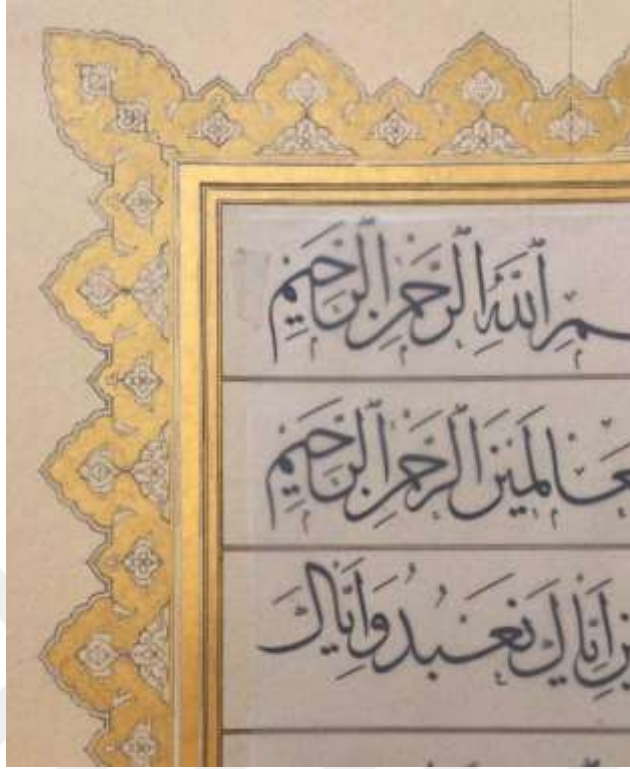 اللَّهِ الرَّحْمَنِ الرَّحِيمِ
عَالَمِينَ الرَّحْمَنِ الرَّحِيمِ
إِيَّاكَ نَعْبُدُ وَإِيَّاكَ